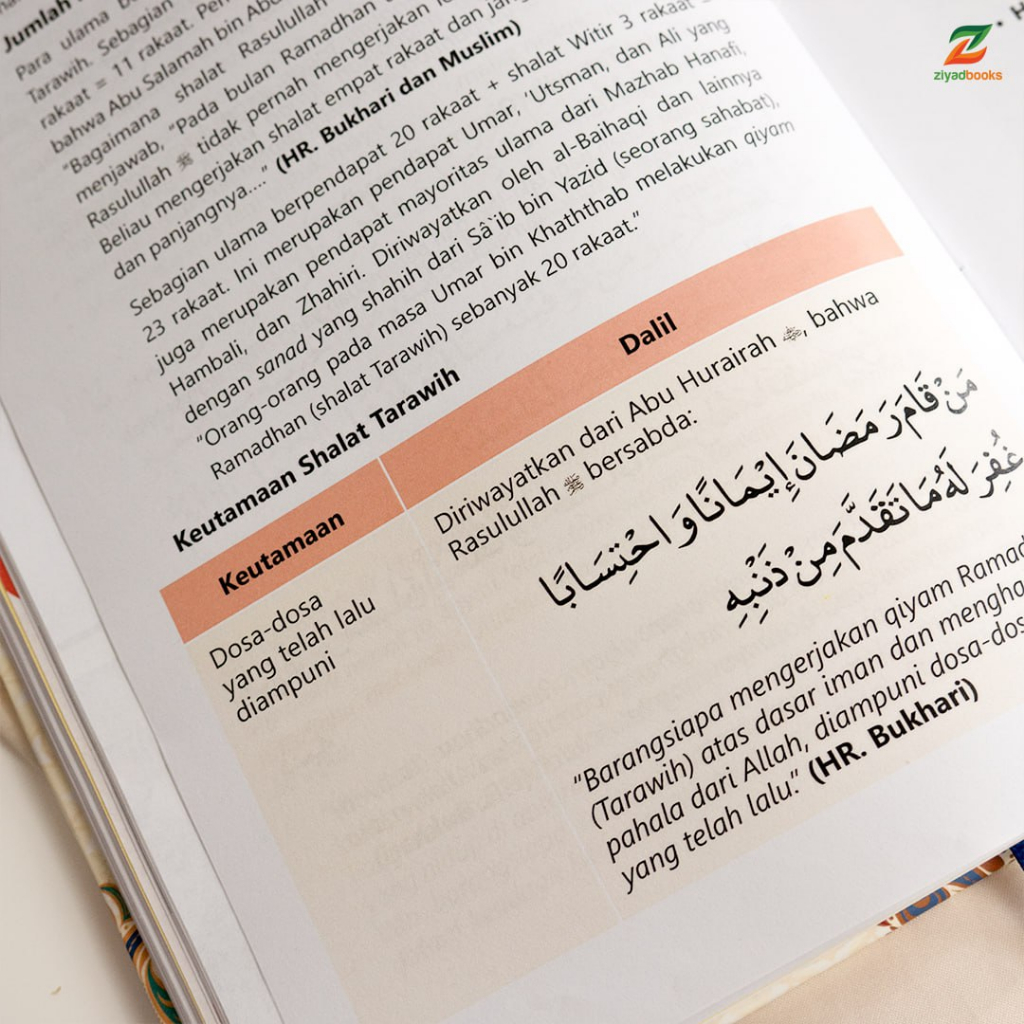 Jumlah
Para ulama
Tarawih. Sebagian
rakaat = 11 rakaat.
bahwa Abu Salamah bin
"Bagaimana shalat Rasulullah
menjawab, "Pada bulan Ramadhan
Rasulullah ﷺ tidak pernah mengerjakan
Beliau mengerjakan shalat empat rakaat dan
dan panjangnya...." (HR. Bukhari dan Muslim)
Sebagian ulama berpendapat 20 rakaat + shalat Witir 3 rakaat
23 rakaat. Ini merupakan pendapat Umar, 'Utsman, dan Ali yang
juga merupakan pendapat mayoritas ulama dari Mazhab Hanafi,
Hambali, dan Zhahiri. Diriwayatkan oleh al-Baihaqi dan lainnya
dengan sanad yang shahih dari Sâ`ib bin Yazid (seorang sahabat),
"Orang-orang pada masa Umar bin Khaththab melakukan qiyam
Ramadhan (shalat Tarawih) sebanyak 20 rakaat."
Keutamaan Shalat Tarawih
Keutamaan
Dalil
Dosa-dosa
yang telah lalu
diampuni
Diriwayatkan dari Abu Hurairah , bahwa
Rasulullah ﷺ bersabda:
مَنْ قَامَ رَمَضَانَ إِيْمَانًا وَ احْتِسَابًا
غُفِرَ لَهُ مَا تَقَدَّمَ مِنْ ذَنْبِهِ
"Barangsiapa mengerjakan qiyam
(Tarawih) atas dasar iman dan
pahala dari Allah, diampuni
yang telah lalu." (HR. Bukhari)
ziyadbooks